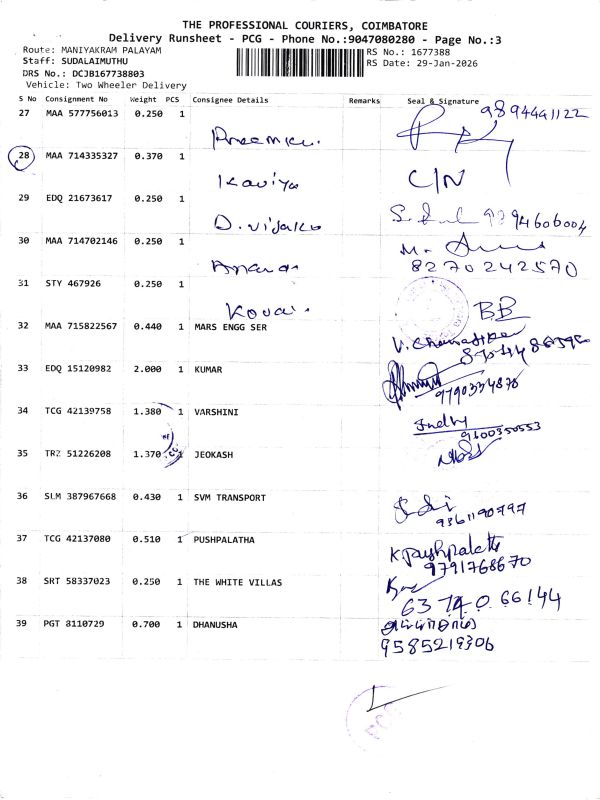 THE PROFESSIONAL COURIERS, COIMBATORE
Delivery Runsheet - PCG - Phone No.:9047080280 - Page No.:3
Route: MANIYAKRAM PALAYAM
RS No.: 1677388
Staff: SUDALAIMUTHU
RS Date: 29-Jan-2026
DRS No.: DCJB167738803
Vehicle: Two Wheeler Delivery
S No Consignment No Weight PCS Consignee Details Remarks Seal & Signature
27 MAA 577756013 0.250 1 9894441122
28 MAA 714335327 0.370 1
Kaviya C/N
29 EDQ 21673617 0.250 1
9394606004
30 MAA 714702146 0.250 1
8270242570
31 STY 467926 0.250 1
Kovai BB
32 MAA 715822567 0.440 1 MARS ENGG SER
33 EDQ 15120982 2.000 1 KUMAR
9790334878
34 TCG 42139758 1.380 1 VARSHINI
9600350553
35 TRZ 51226208 1.370 1 JEOKASH
36 SLM 387967668 0.430 1 SVM TRANSPORT
9361190797
37 TCG 42137080 0.510 1 PUSHPALATHA
K. Pushpalatha
9791768670
38 SRT 58337023 0.250 1 THE WHITE VILLAS
6374066144
39 PGT 8110729 0.700 1 DHANUSHA
9585219306